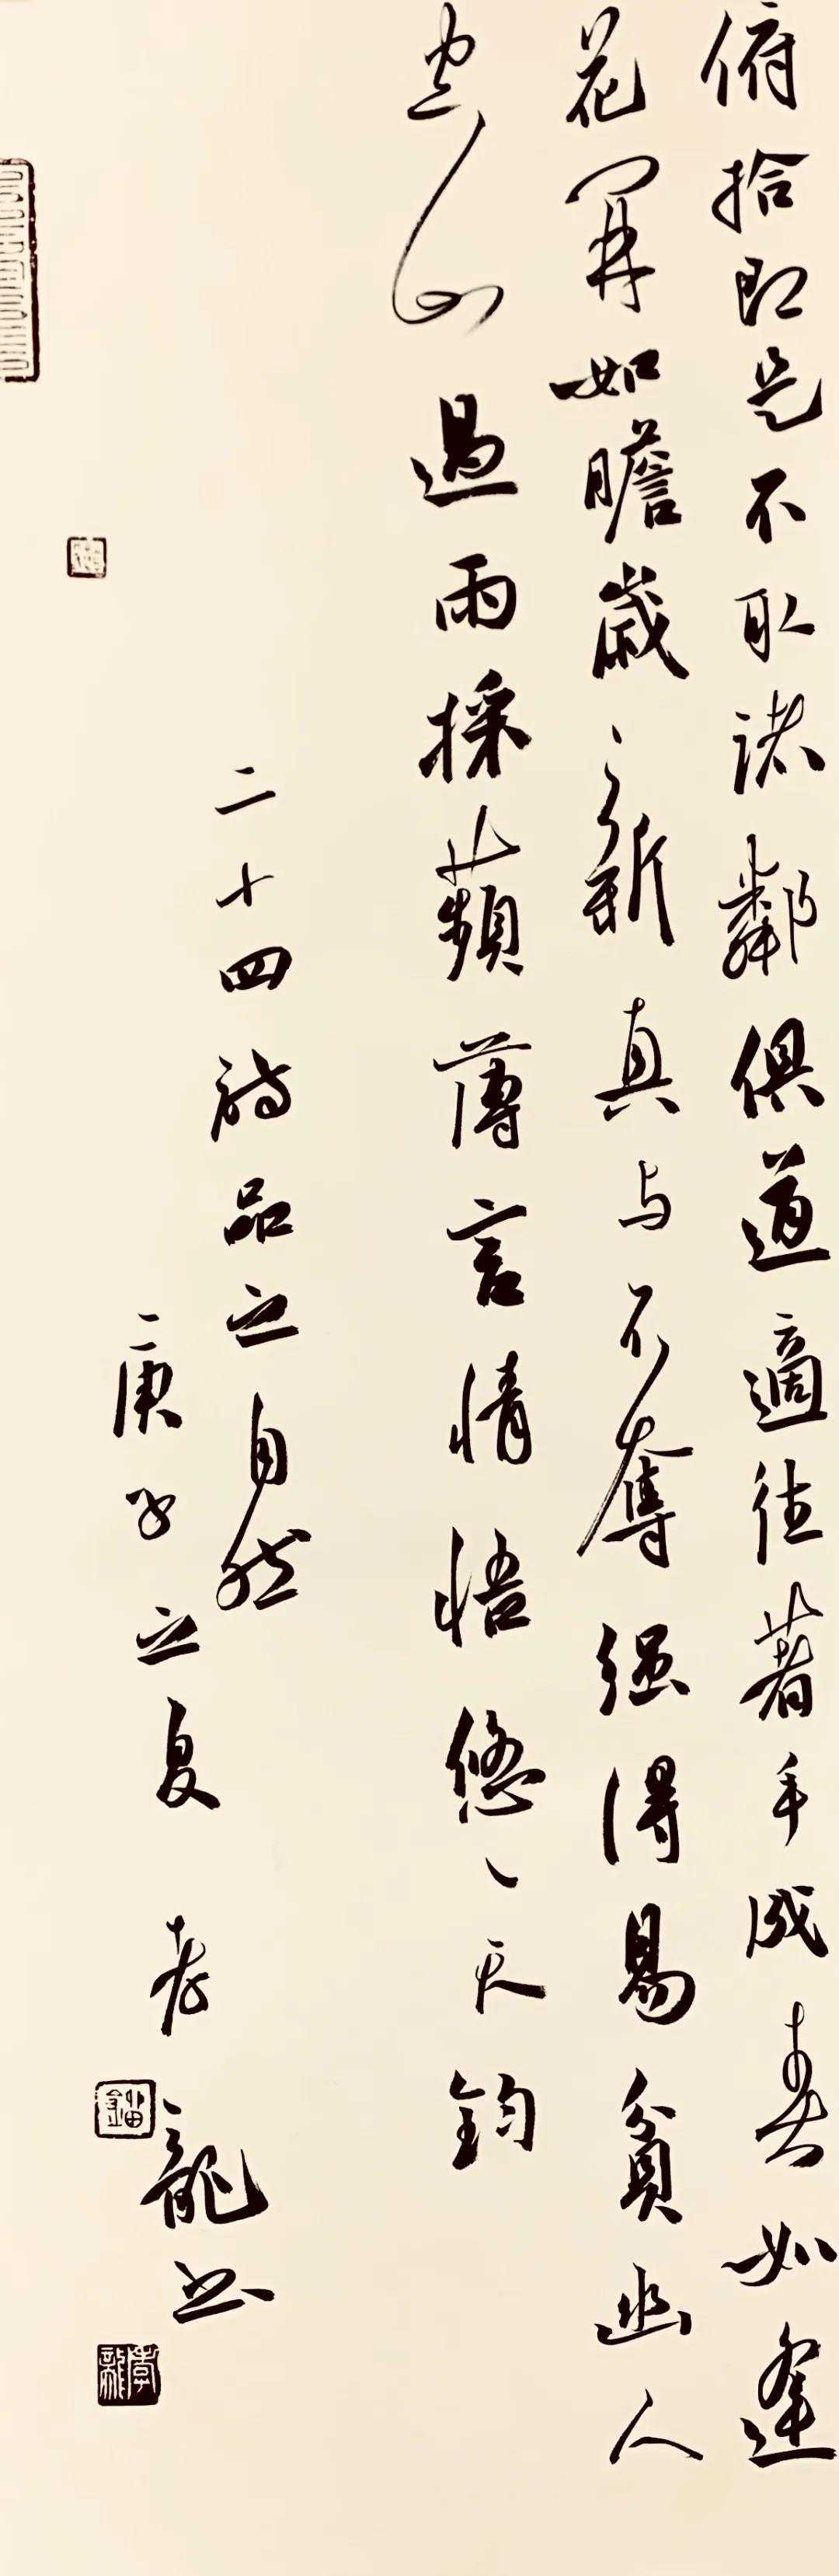 俯拾即是不取诸鄰俱道適往著手成春如逢
花開如瞻歲〻新真与不奪强得易貧幽人
空山過雨採蘋薄言情悟悠〻天鈞
二十四诗品之自然
庚子之夏 孝龍书
孝龍